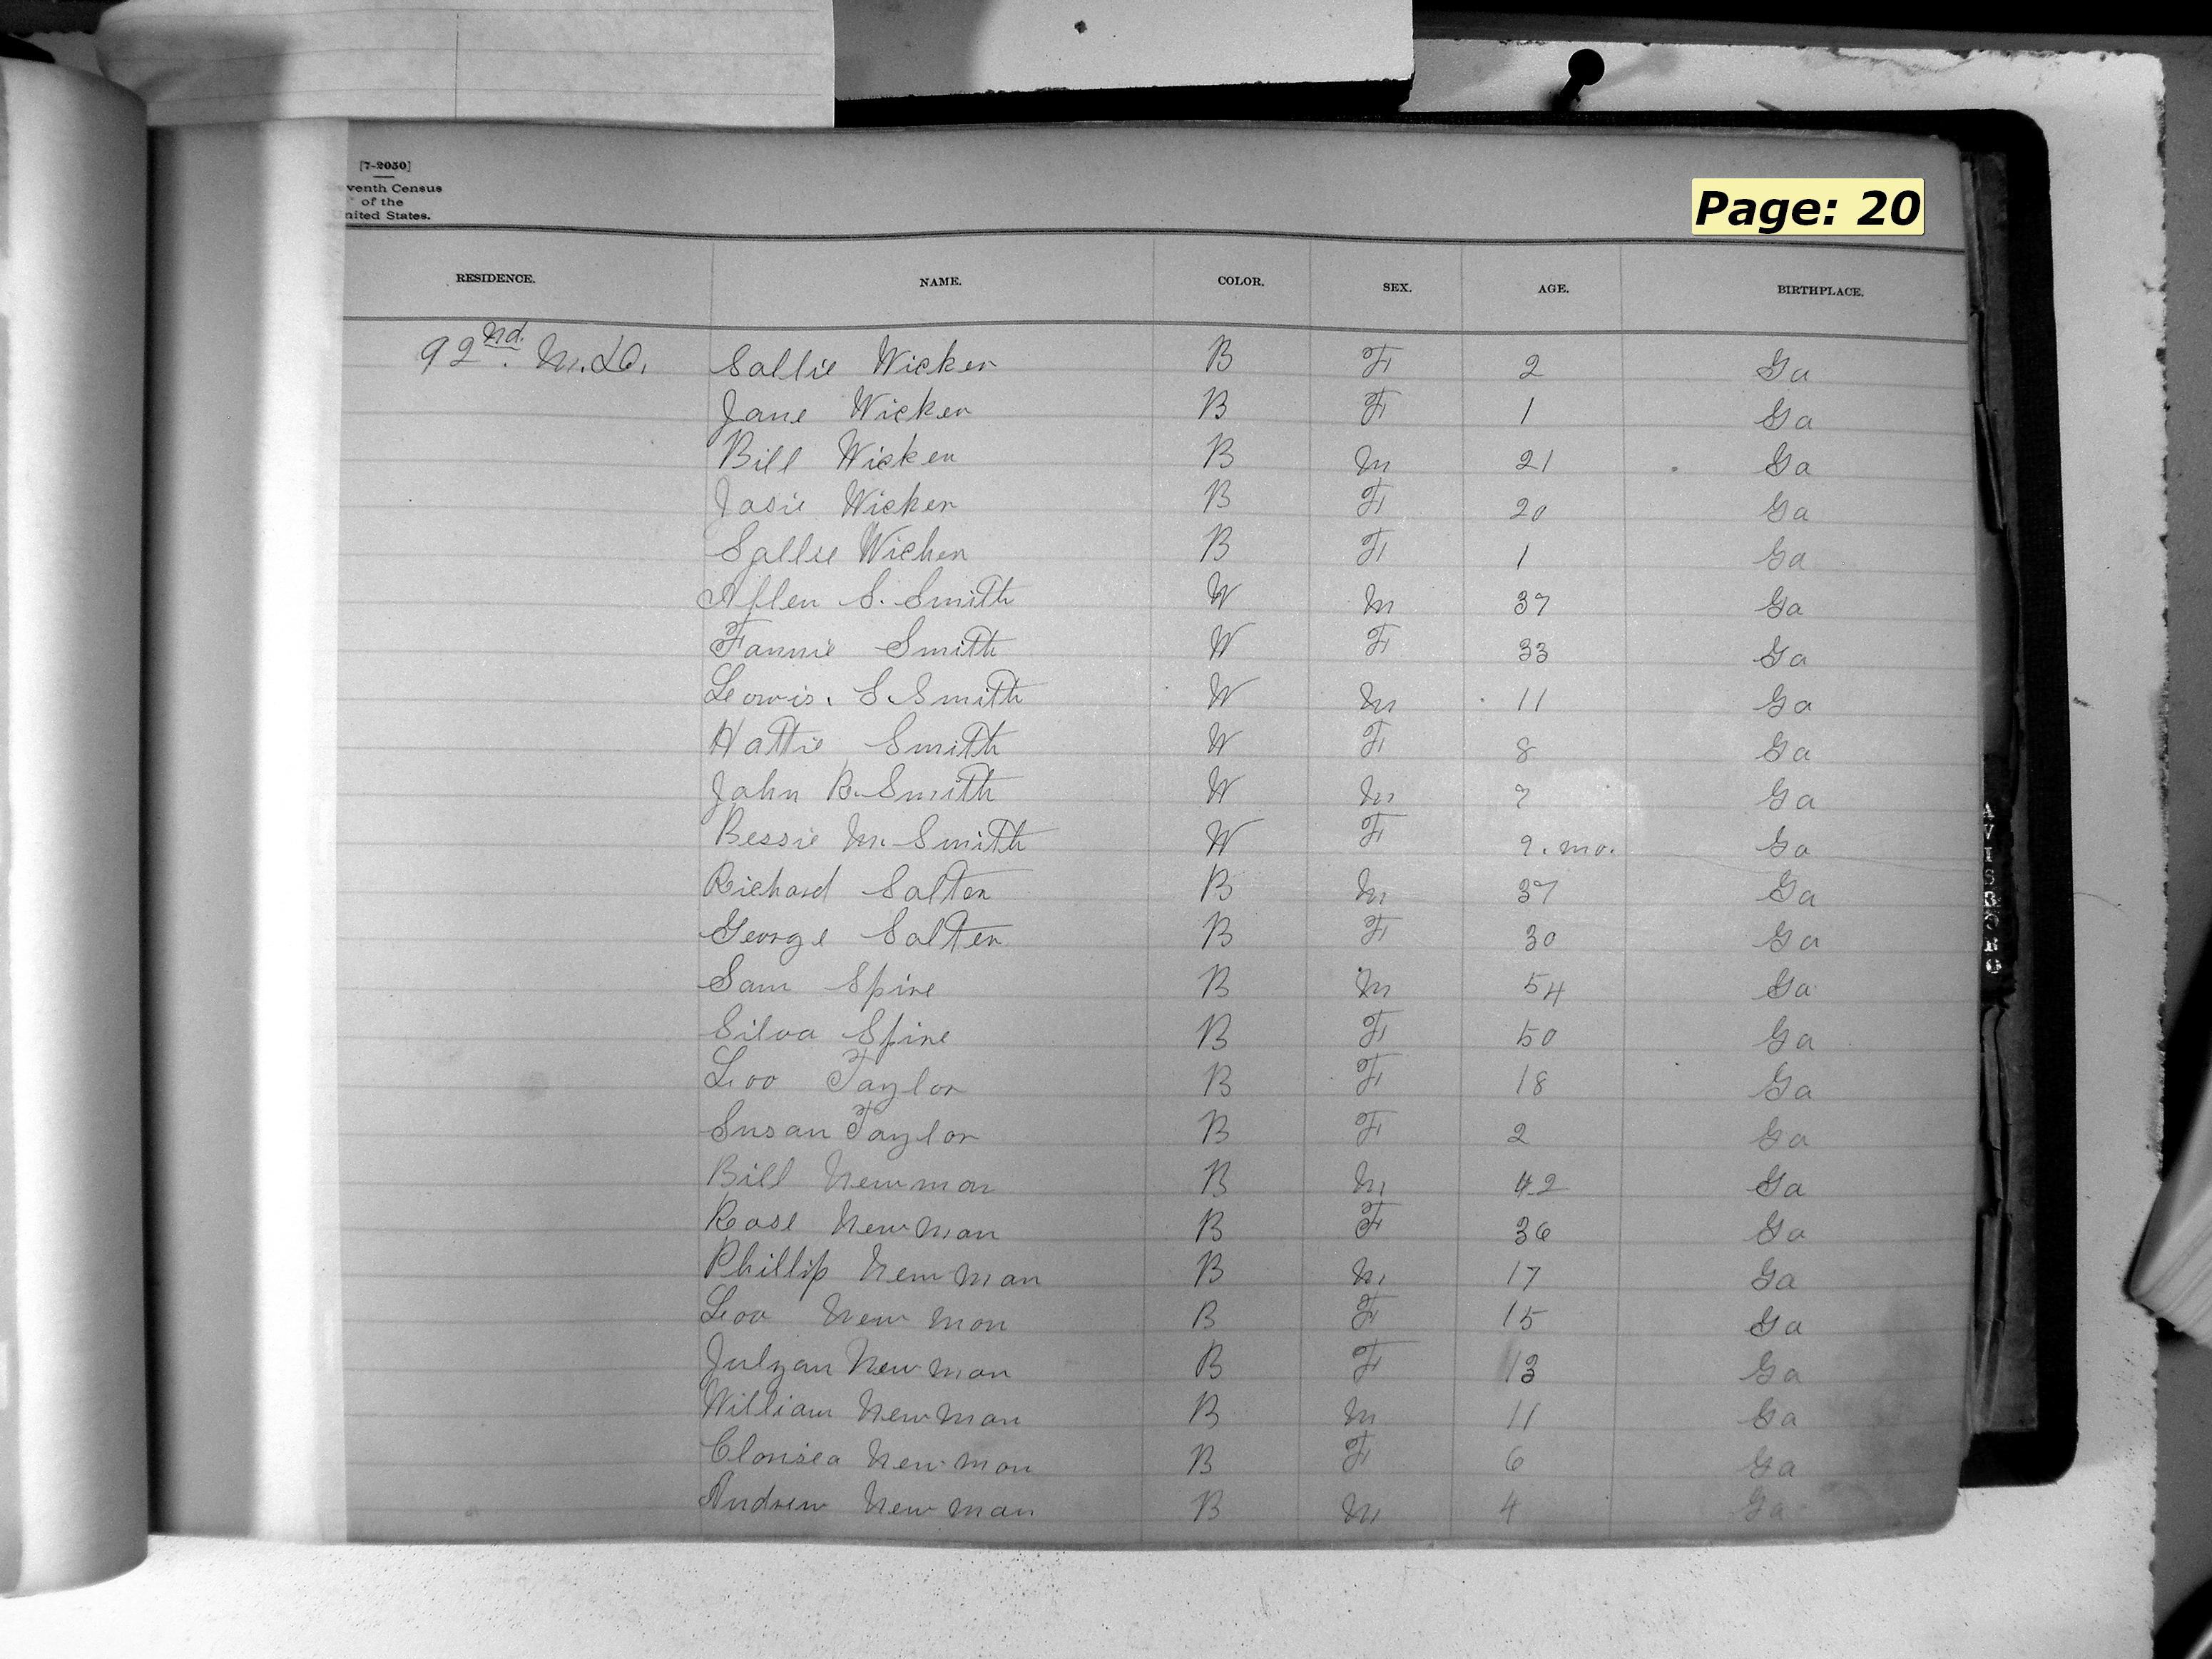 [7-2050]
venth Census
of the
nited States.
Page: 20
RESIDENCE. NAME. COLOR. SEX. AGE. BIRTHPLACE.
92nd. Sallie Wicker B F 2 Ga
Jane Wicker B F 1 Ga
Bill Wicker B M 21 Ga
Josie Wicker B F 20 Ga
Sallie Wicker B F 1 Ga
Allen S. Smith W M 37 Ga
Fannie Smith W F 33 Ga
Lewis. S. Smith W M 11 Ga
Hattie Smith W F 8 Ga
John R. Smith W M 7 Ga
Bessie M. Smith W F 9. mo. Ga
Richard Salter B M 37 Ga
George Salter B F 30 Ga
Sam Spire B M 54 Ga
Silva Spire B F 50 Ga
Loo Taylor B F 18 Ga
Susan Taylor B F 2 Ga
Bill Newman B M 42 Ga
Rose Newman B F 36 Ga
Phillip Newman B M 17 Ga
Loo Newman B F 15 Ga
Julyan Newman B F 13 Ga
William Newman B M 11 Ga
Clorisea Newman B F 6 Ga
Andrew Newman B M 4 Ga